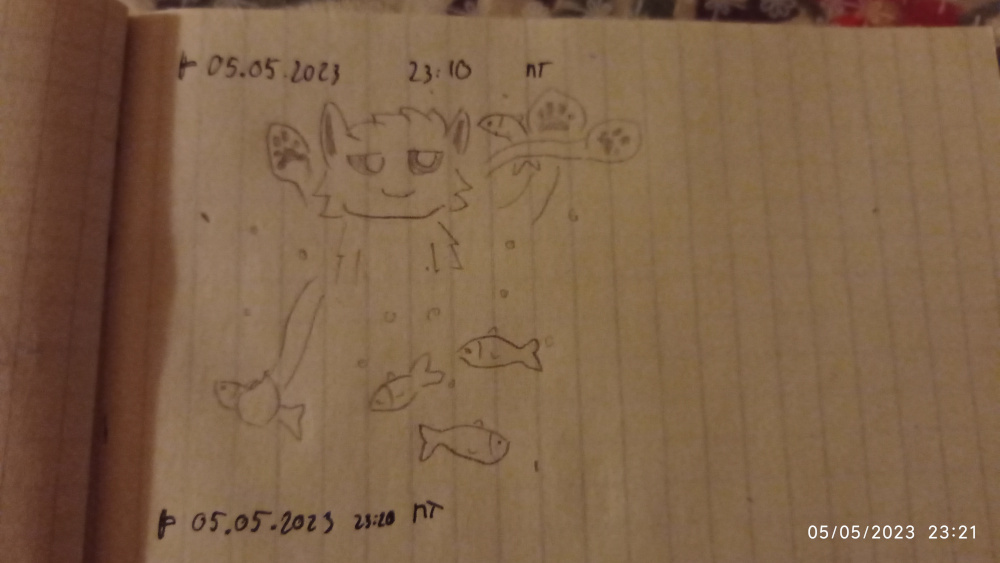 05.05.2023 23:10 пт
05.05.2023 23:20 пт
05/05/2023 23:21